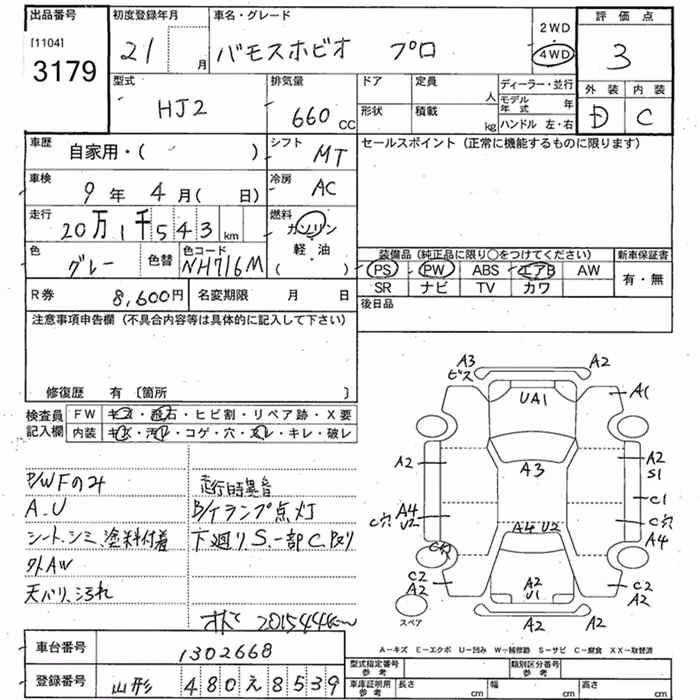 出品番号
[1104]
3179
初度登録年月
21 月
車名・グレード
バモスホビオ プロ
2WD
4WD
評価点
3
外装 内装
D C
型式
HJ2
排気量
660 cc
ドア 定員 人
形状 積載 kg
ディーラー・並行
モデル年式 年
ハンドル 左・右
車歴
自家用・( )
シフト
MT
セールスポイント(正常に機能するものに限ります)
車検
9年 4月( 日)
冷房
AC
走行
20万1千543 km
燃料
ガソリン
軽・油
( )
色
グレー
色替
色コード
NH716M
装備品(純正品に限り○をつけてください)
新車保証書
PS PW ABS エアB AW
有・無
SR ナビ TV カワ
R券
8,600円
名変期限 月 日
後日品
注意事項申告欄(不具合内容等は具体的に記入して下さい)
修復歴 有〔箇所 〕
検査員記入欄
FW キズ・飛石・ヒビ割・リペア跡・X要
内装 キズ・汚れ・コゲ・穴・スレ・キレ・破レ
P/WFのみ
A.U
シート.シミ.塗料付着
外AW
天バリ.汚れ
走行時異音
B/Kランプ点灯
下廻りS.一部C有り
201544km
A3
ビス
A2
UA1
A1
A3
A2
A2
S1
C1
A4
U2
C穴
C穴
A4
A4 U2
C穴
C2
A2
A2
U1
C2
A2
A2
A2
スペア
A－キズ E－エクボ U－凹み W－補修跡 S－サビ C－腐食 XX－取替済
車台番号
1302668
登録番号
山形 480え8539
型式指定番号
参考
類別区分番号
参考
車庫証明用
参考
長さ cm
幅 cm
高さ cm